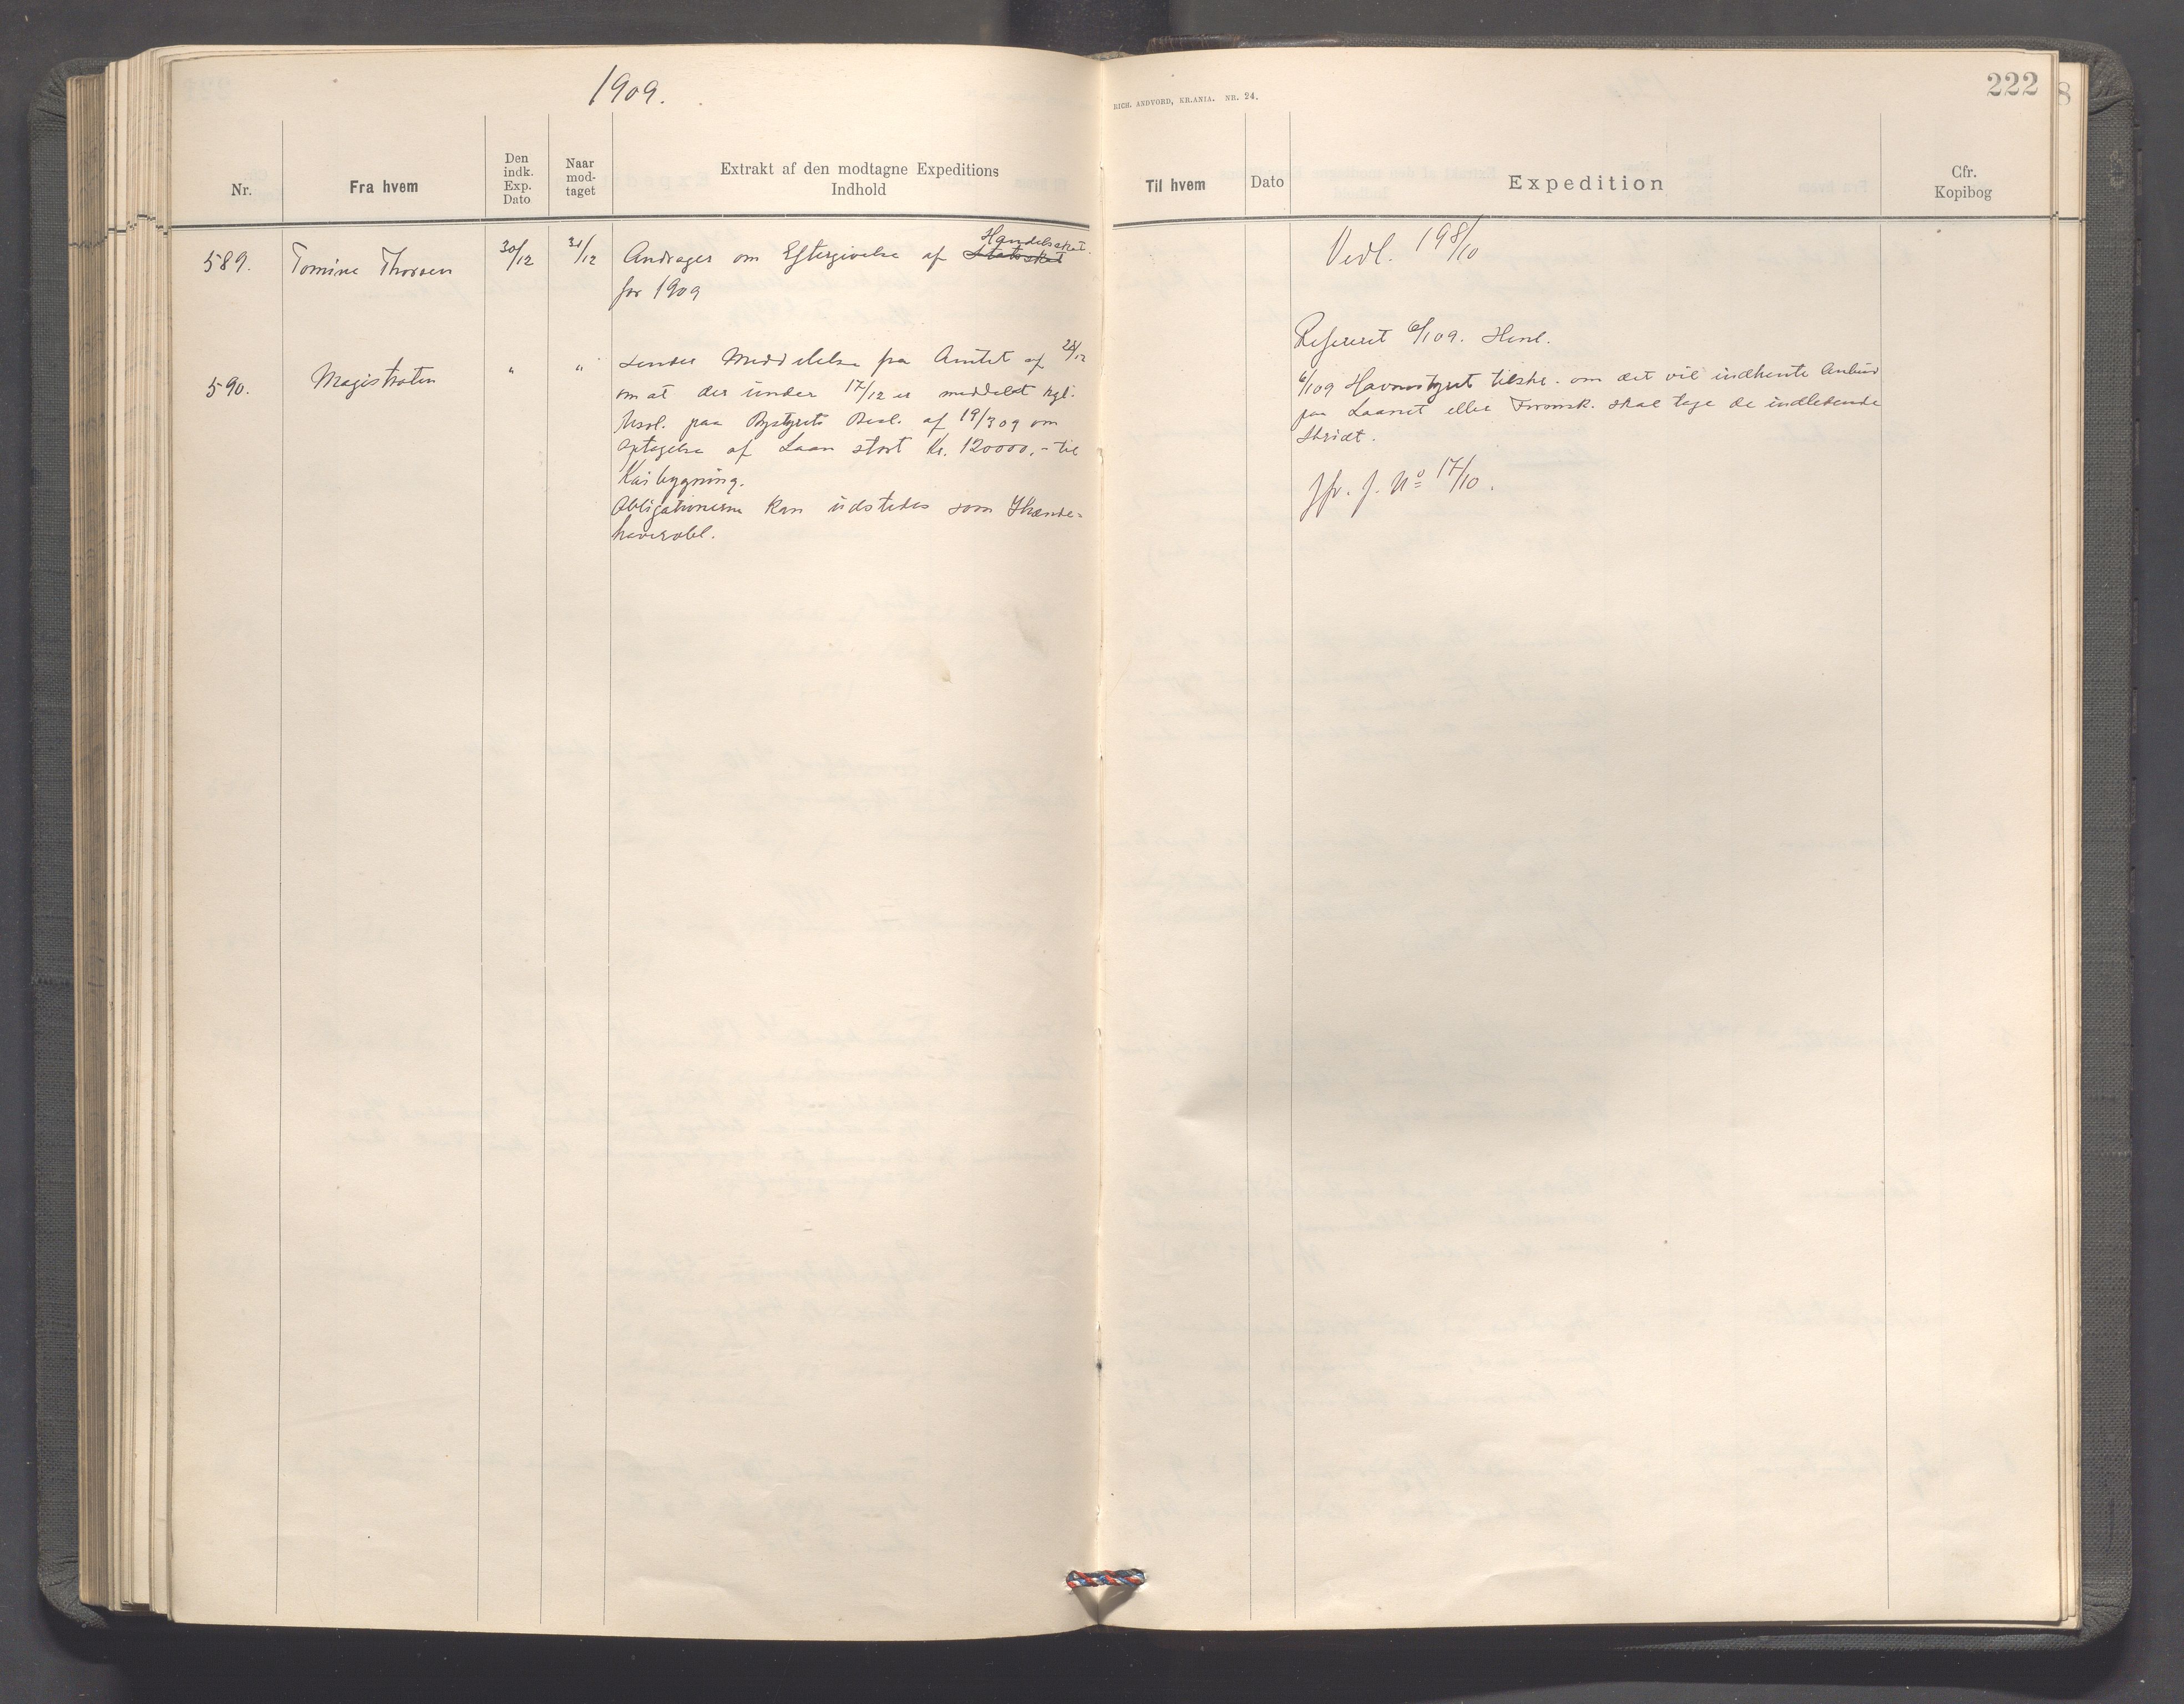 1909.
RICH. ANDVORD, KR.ANIA. NR. 24.
222
8
Nr.
Fra hvem
Den indk. Exp. Dato
Naar mod-taget
Extrakt af den modtagne Expeditions Indhold
Til hvem
Dato
Expedition
Cfr. Kopibog
589. Tomine Thorsen 30/12 31/12 Andrager om Eftergivelse af Statsskat Handelsskat.
for 1909
Vedl. 198/10
590. Magistraten " " Sender Meddelelse fra Amtet af 28/12
om at der under 17/12 er meddelt kgl.
Resol. paa Bystyrets Besl. af 19/3 09 om
Optagelse af Laan stort Kr. 120000,- til
Kaibygning.
Obligationerne kan udstedes som Ihænde-
haverobl.
Refereret 6/1 09. Henl.
6/1 09 Havnestyret tilskr. om det vil indhente Anbud
paa Laanet eller Formsk. skal tage de indledende
Skridt.
Jfr. J. No 17/10.